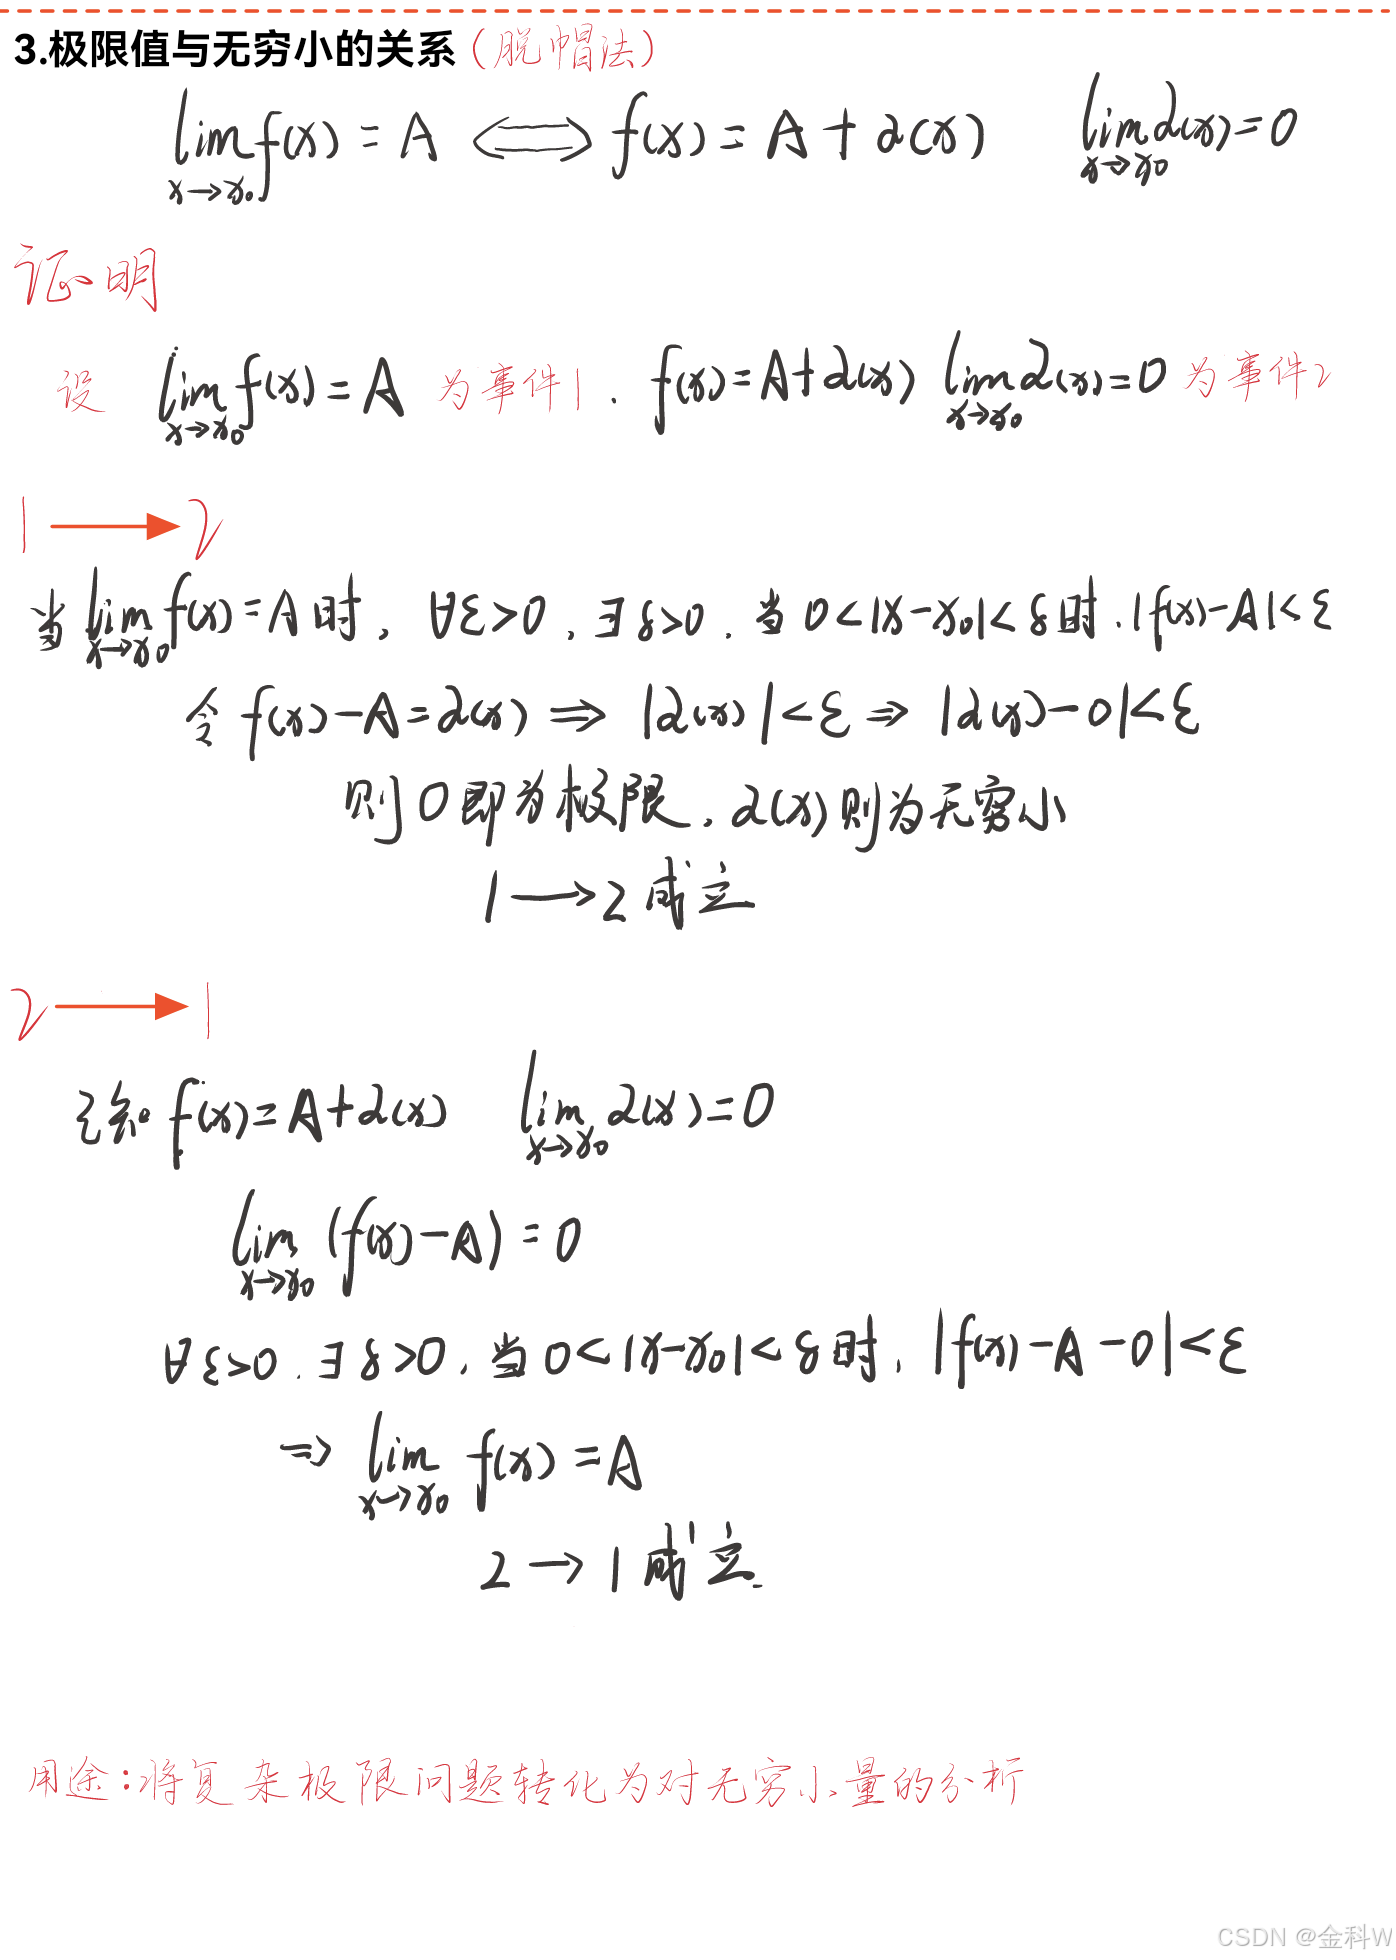 3.极限值与无穷小的关系(脱帽法)
lim f(x) = A ⟺ f(x) = A + α(x) lim α(x) = 0
x→x₀ x→x₀
证明
设 lim f(x) = A 为事件1. f(x) = A + α(x) lim α(x) = 0 为事件2
x→x₀ x→x₀
1 → 2
当 lim f(x) = A 时, ∀ε>0, ∃δ>0, 当 0<|x-x₀|<δ时, |f(x)-A|<ε
x→x₀
令 f(x)-A=α(x) ⇒ |α(x)|<ε ⇒ |α(x)-0|<ε
则0即为极限, α(x)则为无穷小
1 → 2 成立
2 → 1
已知 f(x)=A+α(x) lim α(x)=0
x→x₀
lim (f(x)-A) = 0
x→x₀
∀ε>0, ∃δ>0, 当 0<|x-x₀|<δ时, |f(x)-A-0|<ε
⇒ lim f(x) = A
x→x₀
2 → 1 成立.
用途:将复杂极限问题转化为对无穷小量的分析
CSDN @金科W